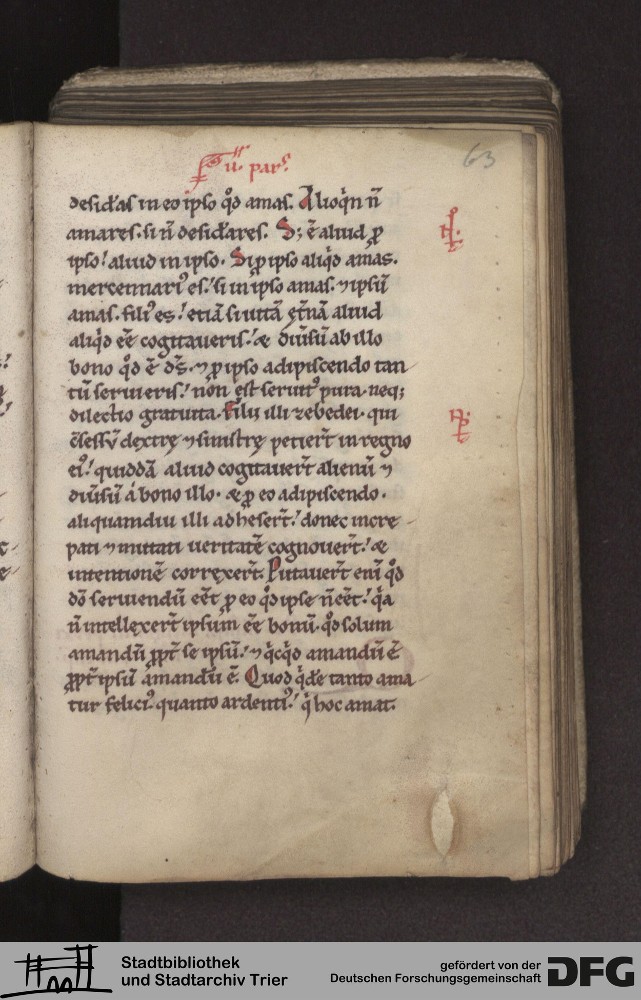 63
ii. pars
desid̾as in eo ipso qͦd amas. Alioqͥn n̄
amares. si n̄ desid̾ares. S; ē aliud ꝓ
ipso! aliud in ipso. Si ꝓ ipso aliqͥd amas.
mercennariꝰ es! si in ipso amas. ⁊ ipsū
amas. filiꝰ es! etiā si uitā et̾nā aliud
aliqͥd eē̄ cogitaueris! & diu̾sū ab illo
bono qͦd ē d̄s. ⁊ ꝓ ipso adipiscendo tan
tū seruieris! non est seruitꝰ pura. neq;
dilectio gratuita. Filii illi zebedei. qui
c̄sessū dextrę ⁊ sinistrę petiert̄ in regno
eiꝰ! quiddā aliud cogitauert̄ alienū ⁊
diu̾sū á bono illo. & ꝓ eo adipiscendo.
aliquamdiu illi adhesert̄! donec incre
pati ⁊ mutati ueritatē cognouert̄! &
intentionē correxert̄. Putauert̄ eni̅ qͦd
dō seruiendū eēt ꝓ eo qͦd ipse n̄ eēt! qͥa
n̄ intellexert̄ ipsum eē̄ bonū. qͦd solum
amandū ꝓpt̾ se ipsū! ⁊ qͥcqͥd amandū ē
ꝓpt̾ ipsū amandū ē. Quod qͥdē tanto ama
tur feliciꝰ. quanto ardentiꝰ! qͥ hoc amat.
Stadtbibliothek
und Stadtarchiv Trier
gefördert von der
Deutschen Forschungsgemeinschaft
DFG